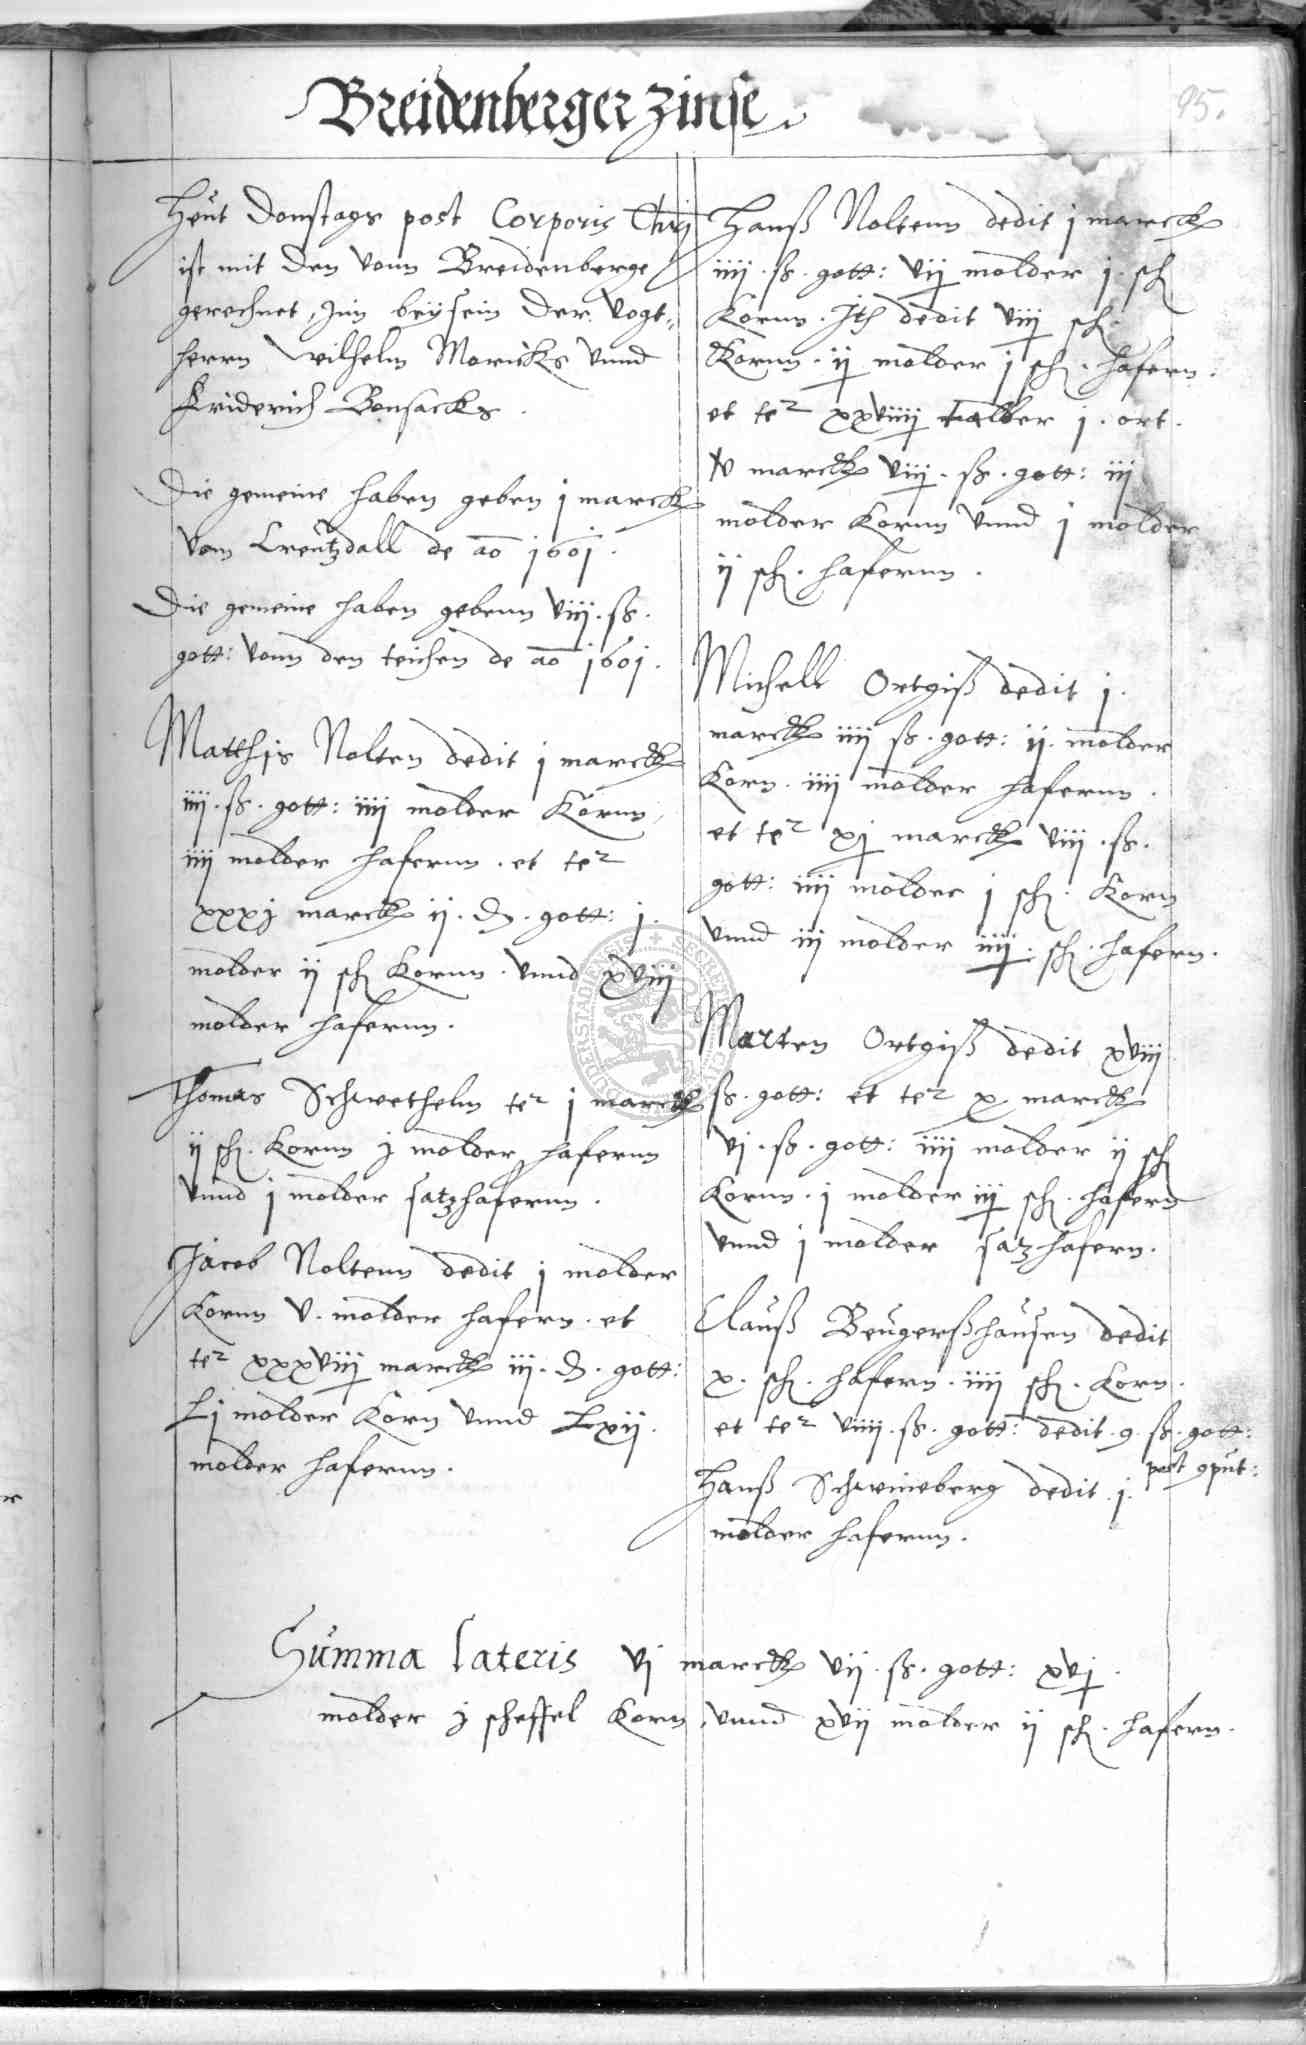 Breidenberger Zinse
95.
Heut Donstags post Corporis Chrj
ist mit den vonn Breidenberge
gerechnet, Jnn beÿsein der Vogt-
herrn Wilhelm Maricks vnnd
Friderich Bonsacks.
Die gemeine haben geben j marck
vom Creutzdall de ao 1601.
Die gemeine haben gebenn viij. ß.
gott: vonn den teichen de ao 1601.
Matthis Nolten dedit j marck
iiij. ß. gott: iiij molder Kornn,
iiij molder hafernn. et te2
xxxj marck ij. d. gott: j.
molder ij sch Kornn. vnnd xviij
molder hafernn.
Thomas Schwethelm te2 j marck
ij sch. Kornn j molder hafernn
vnnd j molder satzhafernn.
Jacob Noltenn dedit j molder
Kornn v. molder hafern. et
te2 xxxviij marck iij. d. gott:
Lj molder Korn vnnd Lxij.
molder hafernn.
Hanß Noltenn dedit j marck
iiij. ß. gott: vij molder j. sch
Kornn. Jth dedit viij sch.
Kornn. ij molder j sch. hafern.
et te2 xxviiij talber j. ort.
v marck viij. ß. gott: iij
molder Kornn vnnd j molder
ij sch. hafernn.
Michell Ortgiß dedit j.
marck iiij ß. gott: ij. molder
Korn. iiij molder hafernn.
et te2 xj marck viij. ß.
gott: iiij molder j sch. Korn
vnnd iij molder iiij. sch. hafern.
Marten Ortgiß dedit xviij
ß. gott: et te2 x. marck
vj. ß. gott: iiij molder ij sch
Kornn. j molder iij sch. hafern
vnnd j molder satzhafern.
Clauß Beugerßhausen dedit
x. sch. hafern. iiij sch. Korn.
et te2 viiij. ß. gott: dedit. 9 ß. gott:
post 9put:
Hanß Schwineberg dedit j.
molder hafernn.
Summa lateris vj marck vij. ß. gott: xvj.
molder j scheffel Korn, vnnd xvij molder ij sch. hafern.